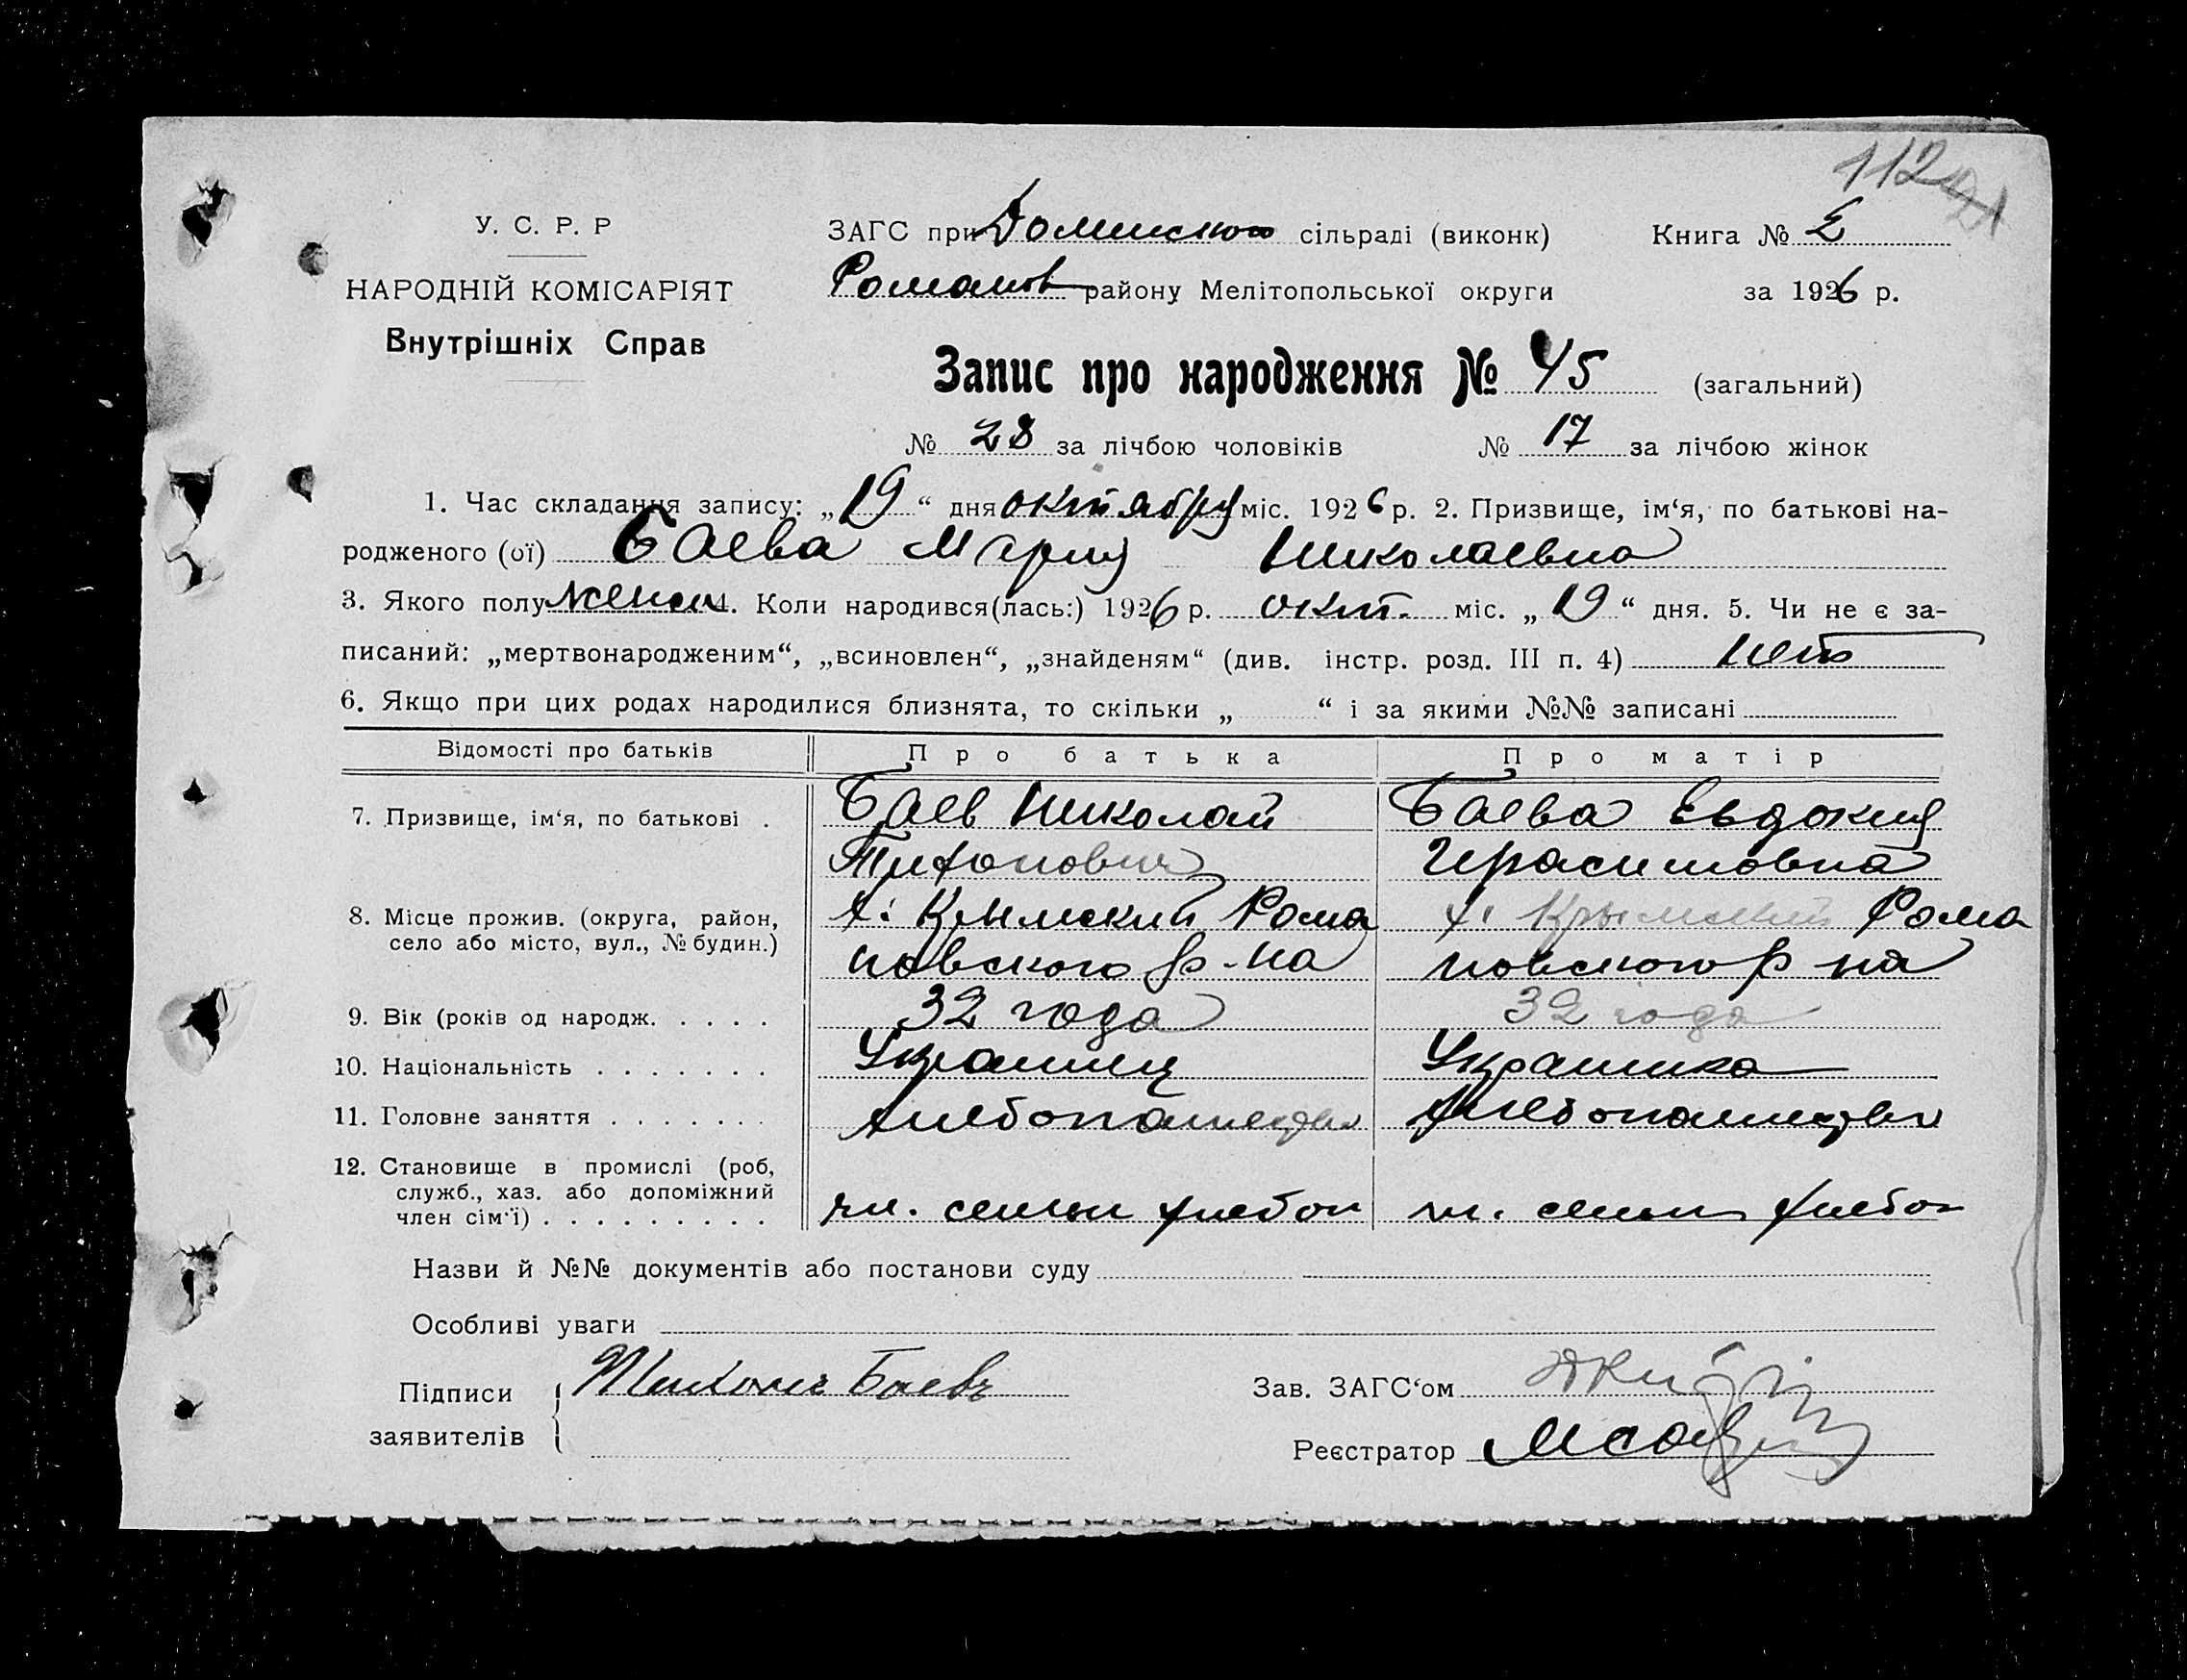 112
У. С. Р. Р
НАРОДНІЙ КОМІСАРІЯТ
Внутрішніх Справ
ЗАГС при сільраді (виконк) Книга №
Романов району Мелітопольської округи за 1926 р.
Запис про народження № 45 (загальний)
№ 28 за лічбою чоловіків № 17 за лічбою жінок
1. Час складання запису: „19“ дня октября міс. 1926 р. 2. Призвище, ім‘я, по батькові на-
родженого (ої) Баева Мария Николаевна
3. Якого полу женск 4. Коли народився(лась:) 1926 р. окт. міс. „19“ дня. 5. Чи не є за-
писаний: „мертвонародженим“, „всиновлен“, „знайденям“ (див. інстр. розд. III п. 4) нет
6. Якщо при цих родах народилися близнята, то скільки „ “ і за якими №№ записані
Відомості про батьків Про батька Про матір
7. Призвище, ім‘я, по батькові . Баев Николай Баева Евдокия
Тихонович Герасимовна
8. Місце прожив. (округа, район, х. Крымский Рома х. Крымский Рома
село або місто, вул., № будин.) новского р-на новского р на
9. Вік (років од народж. . . . . 32 года 32 года
10. Національність . . . . . . . Украинец Украинка
11. Головне заняття . . . . . . . хлебопашество хлебопашество
12. Становище в промислі (роб,
служб., хаз. або допоміжний
член сім‘ї) . . . . . . . . . чл. семьи хлебоп чл. семьи хлебоп
Назви й №№ документів або постанови суду
Особливі уваги
Підписи Баевъ Зав. ЗАГС‘ом
заявителів Реєстратор